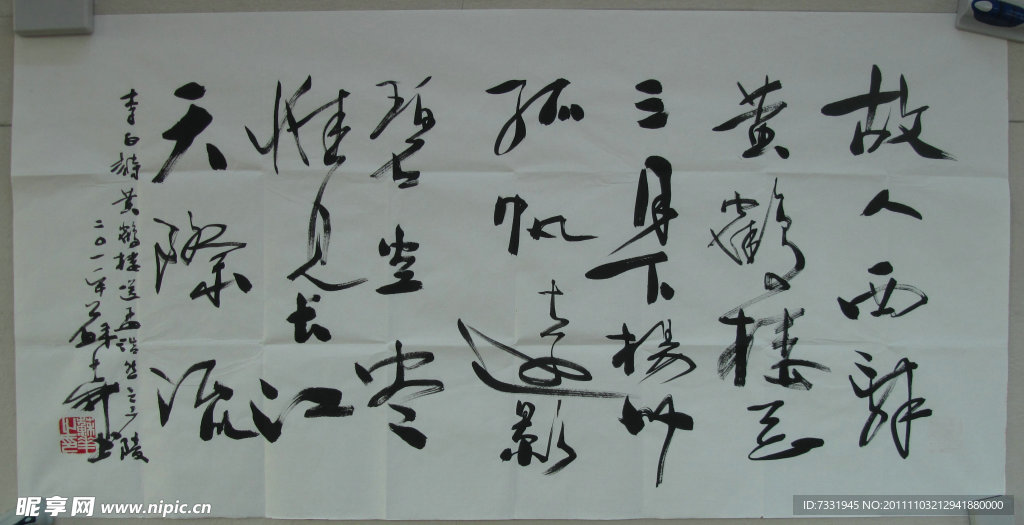 故人西辞
黄鶴楼
三月下楊州
孤帆遠影
碧空尽
惟见长江
天際流
李白詩黄鶴楼送孟浩然之广陵
二0一一年
昵享网 www.nipic.cn
ID:7331945 NO:20111103212941880000